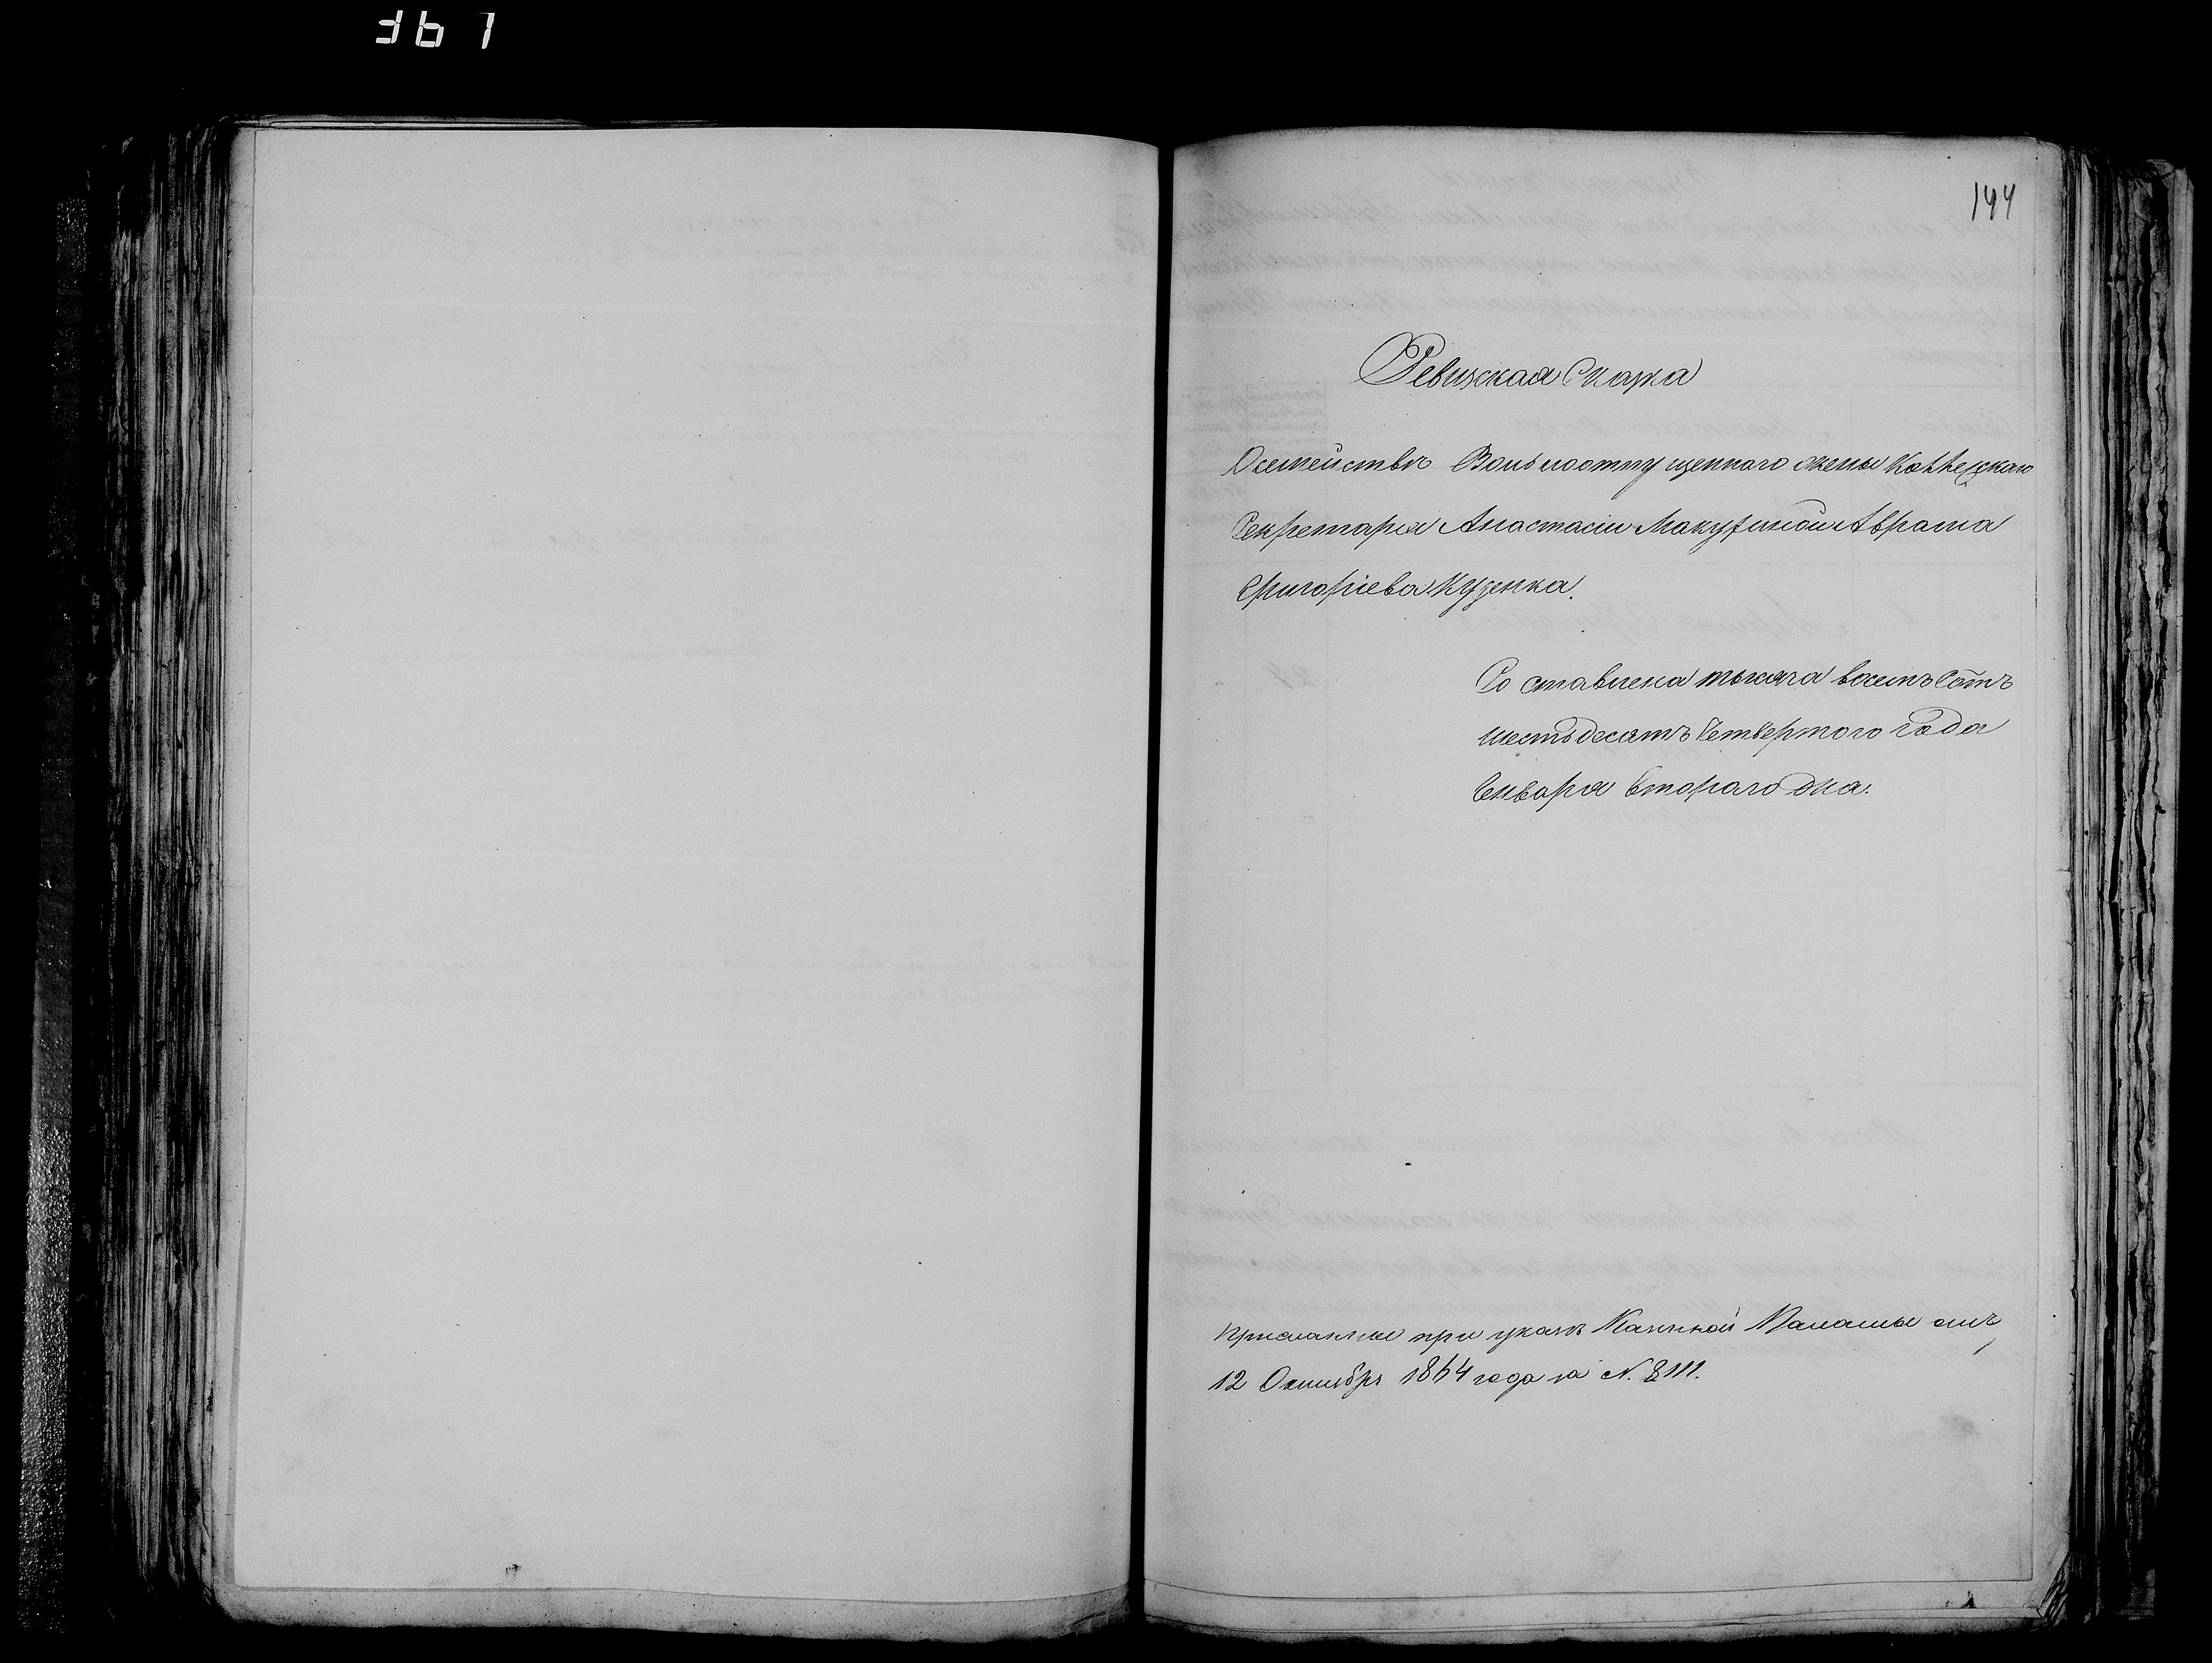 367
144
Ревизская Сказка
Осемействѣ Вольноотпущеннаго жены Коллежскаго
Секретаря Анастасіи Макухиной Абрама
Григоріева Куценка.
Составлена тысяча восемъсотъ
шестьдесятъ Четвертого года
Генваря второго дня.
присланные при указѣ Казенной Палаты отъ
12 Октября 1864 года за N. 8111.